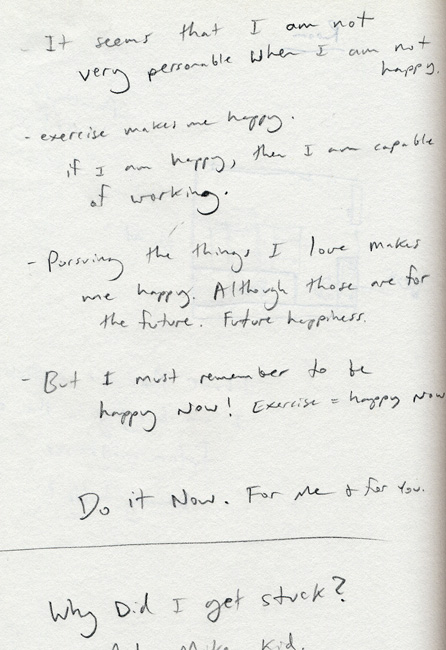 - It seems that I am not
very personable when I am not
happy.
- exercise makes me happy.
if I am happy, then I am capable
of working.
- Pursuing the things I love makes
me happy. Although those are for
the future. Future happiness.
- But I must remember to be
happy Now! Exercise = happy Now
Do it Now. For Me & for You.
Why Did I get stuck?
Mike Kid.